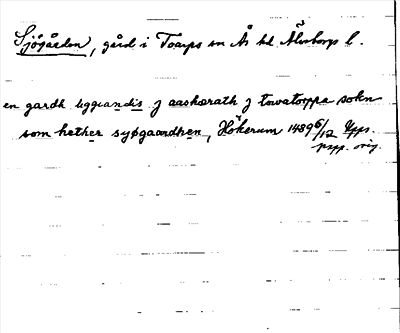 Sjögården, gård i Toarps sn Ås hd Älvsborgs l.
en gardh liggiandis j aasheerath j towatorppa sokn
som hether syøgaardhen, Hökerum 1489 6/12 Upps.
papp. orig.